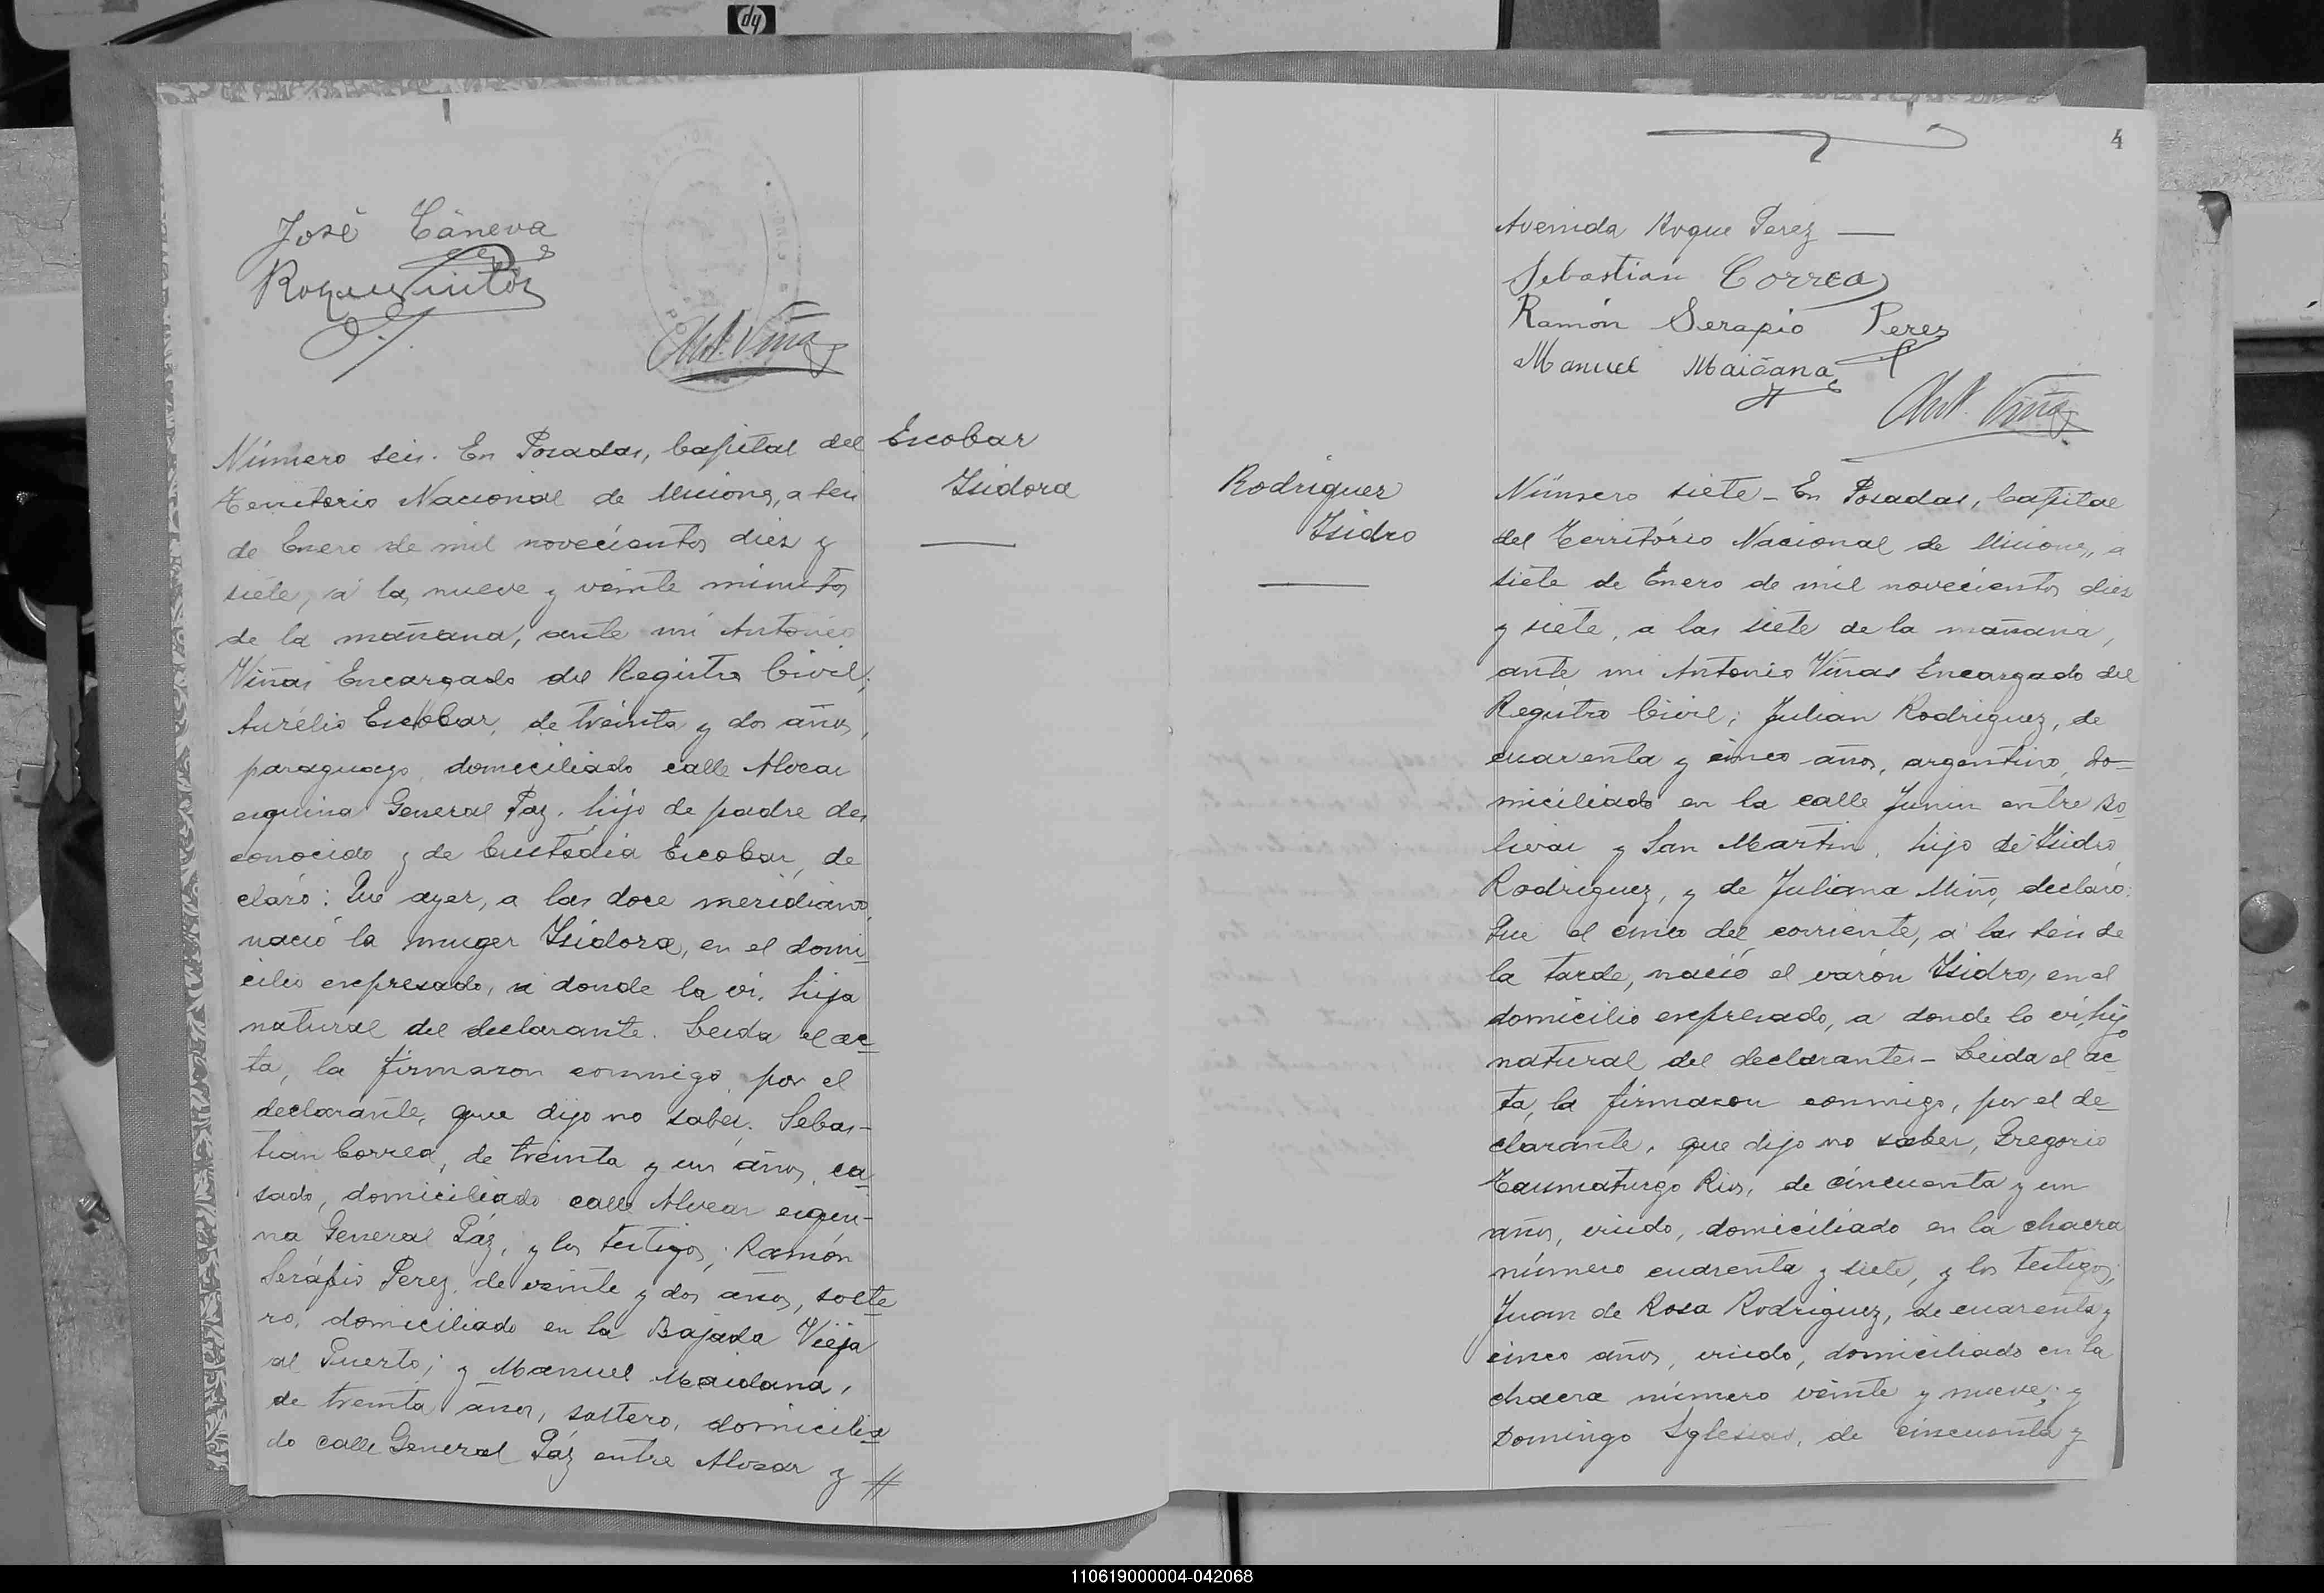 José Cáneva
Ant. Viñas
Número seis. En Posadas, Capital del
Territorio Nacional de Misiones, a seis
de Enero de mil novecientos diez y
siete, a las nueve y veinte minutos
de la mañana, ante mi Antonio
Viñas Encargado del Registro Civil;
Aurélio Escobar, de treinta y dos años,
paraguayo, domiciliado calle Alvear
esquina General Paz, hijo de padre des
conocido y de Custódia Escobar, de
claró: Que ayer, a las doce meridiano,
nació la muger Isidora, en el domi
cilio expresado, a donde la vi, hija
natural del declarante. Leida el ac
ta, la firmaron conmigo, por el
declarante, que dijo no saber, Sebas-
tian Correa, de treinta y un años, ca
sado, domiciliado calle Alvear esqui-
na General Páz, y los testigos; Ramón
Seráfio Perez, de veinte y dos años, solte
ro, domiciliado en la Bajada Vieja
al Puerto; y Manuel Maidana,
de treinta años, soltero, domicilia
do calle General Páz entre Alvear y //
Escobar
Isidora
4
Avenida Roque Perez —
Sebastian Correa
Ramón Serapio Perez
Manuel Maidana
Ant. Viñas
Rodriguez
Isidro
Número siete - En Posadas, Capital
del Território Nacional de Misiones, a
siete de Enero de mil novecientos diez
y siete, a las siete de la mañana,
ante mi Antonio Viñas Encargado del
Registro Civil; Julian Rodriguez, de
cuarenta y cinco años, argentino, do=
miciliado en la calle Junin entre Bo
livar y San Martin, hijo de Isidro
Rodriguez, y de Juliana Miño, declaró:
Que el cinco del corriente, a las seis de
la tarde, nació el varón Isidro, en el
domicilio expresado, a donde lo vi, hijo
natural del declarante - Leida el ac
ta, la firmaron conmigo, por el de
clarante, que dijo no saber, Gregorio
Taumaturgo Rios, de cincuenta y un
años, viudo, domiciliado en la chacra
número cuarenta y siete, y los testigos;
Juan de Rosa Rodriguez, de cuarenta y
cinco años, viudo, domiciliado en la
chacra número veinte y nueve; y
Domingo Iglesias, de cincuenta y
110619000004-042068